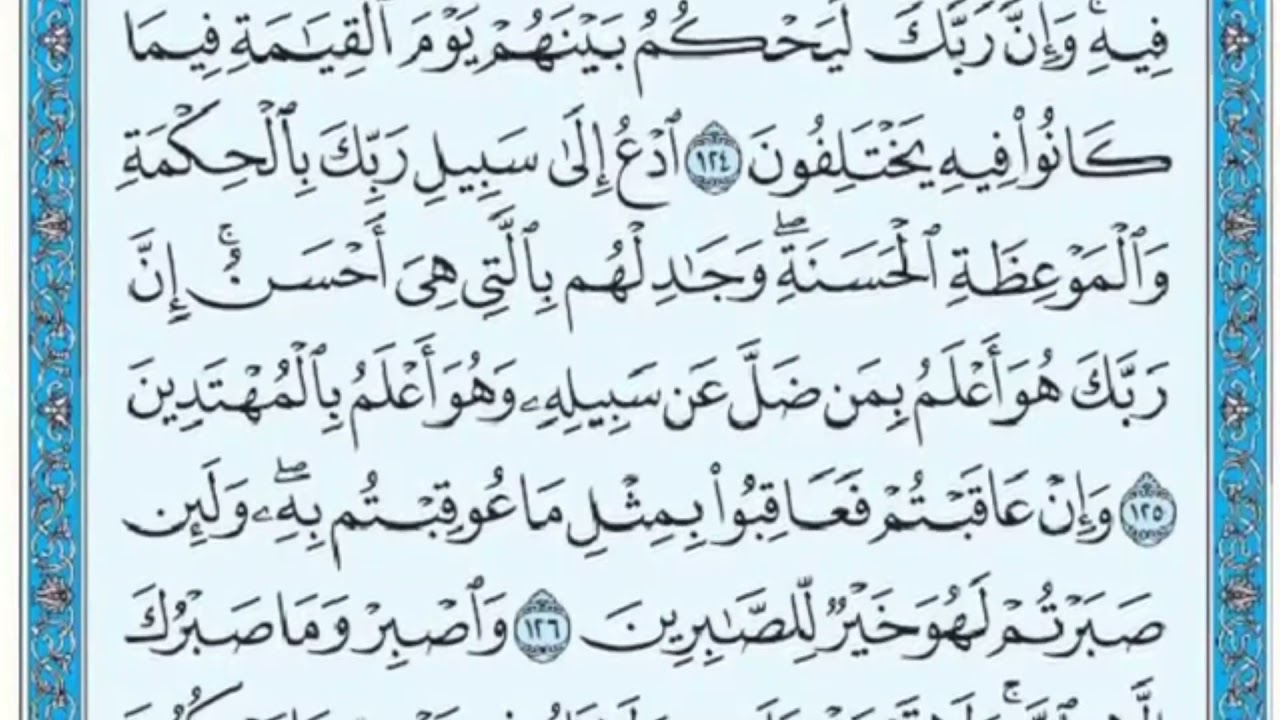 فِيهِۚ وَإِنَّ رَبَّكَ لَيَحْكُمُ بَيْنَهُمْ يَوْمَ ٱلْقِيَٰمَةِ فِيمَا
كَانُوا۟ فِيهِ يَخْتَلِفُونَ ١٢٤ ٱدْعُ إِلَىٰ سَبِيلِ رَبِّكَ بِٱلْحِكْمَةِ
وَٱلْمَوْعِظَةِ ٱلْحَسَنَةِۖ وَجَٰدِلْهُم بِٱلَّتِى هِىَ أَحْسَنُۚ إِنَّ
رَبَّكَ هُوَ أَعْلَمُ بِمَن ضَلَّ عَن سَبِيلِهِۦ وَهُوَ أَعْلَمُ بِٱلْمُهْتَدِينَ
١٢٥ وَإِنْ عَاقَبْتُمْ فَعَاقِبُوا۟ بِمِثْلِ مَا عُوقِبْتُم بِهِۦۖ وَلَئِن
صَبَرْتُمْ لَهُوَ خَيْرٌ لِّلصَّٰبِرِينَ ١٢٦ وَٱصْبِرْ وَمَا صَبْرُكَ